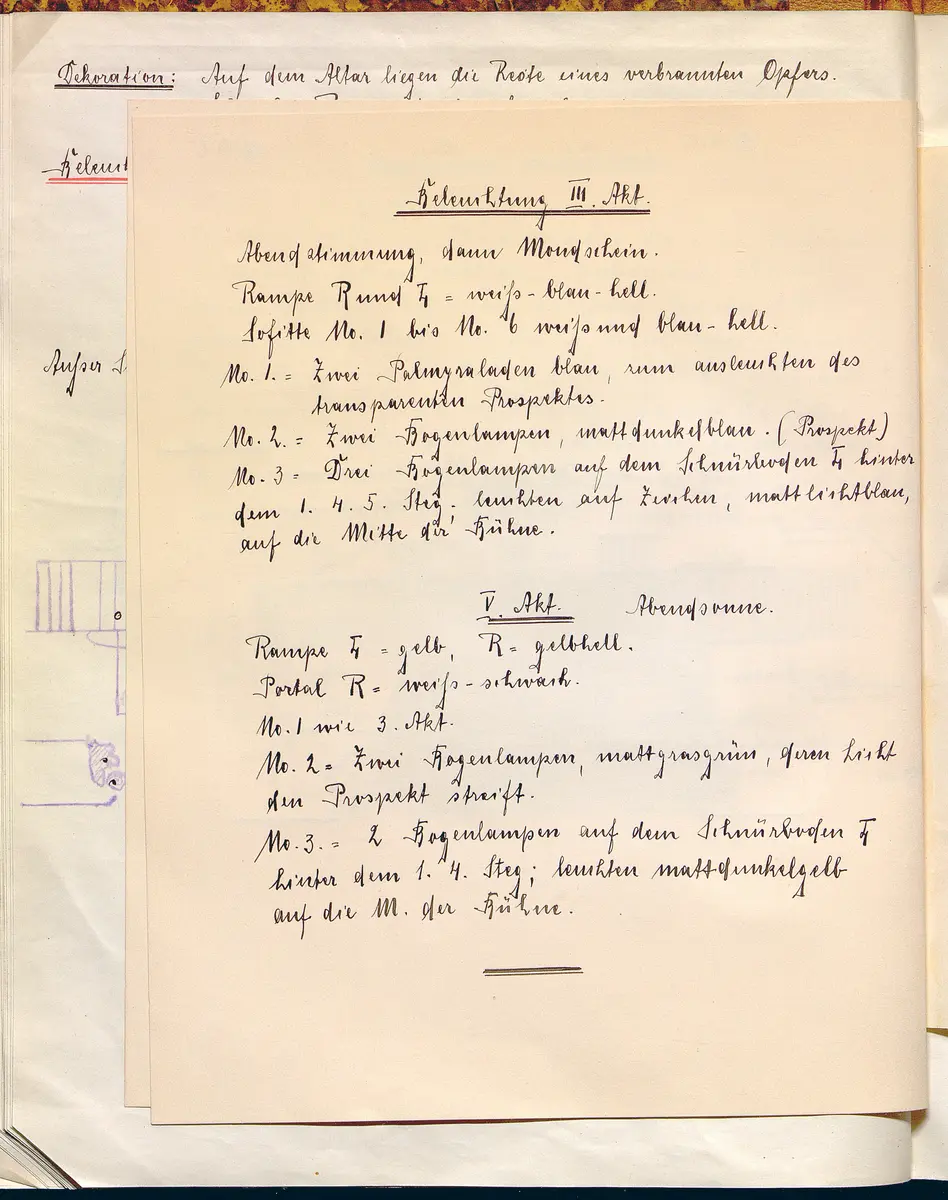 Dekoration: Auf dem Altar liegen die Reste eines verbrannten Opfers.
Beleucht
Beleuchtung III. Akt.
Abendstimmung, dann Mondschein.
Rampe R und L = weiß-blau-hell.
Sofitte No. 1 bis No. 6 weiß und blau-hell.
No. 1. = Zwei Palmyraladen blau, zum ausleuchten des
transparenten Prospektes.
No. 2. = Zwei Bogenlampen, mattdunkelblau. (Prospekt)
No. 3 = Drei Bogenlampen auf dem Schnürboden L hinter
dem 1. 4. 5. Steg; leuchten auf Zeichen, mattlichtblau,
auf die Mitte der Bühne.
V. Akt. Abendsonne.
Rampe L = gelb, R = gelbhell.
Portal R = weiß-schwach.
No. 1 wie 3. Akt.
No. 2 = Zwei Bogenlampen, mattgrasgrün, deren Licht
den Prospekt streift.
No. 3. = 2 Bogenlampen auf dem Schnürboden L
hinter dem 1. 4. Steg; leuchten mattdunkelgelb
auf die M. der Bühne.
Außer S